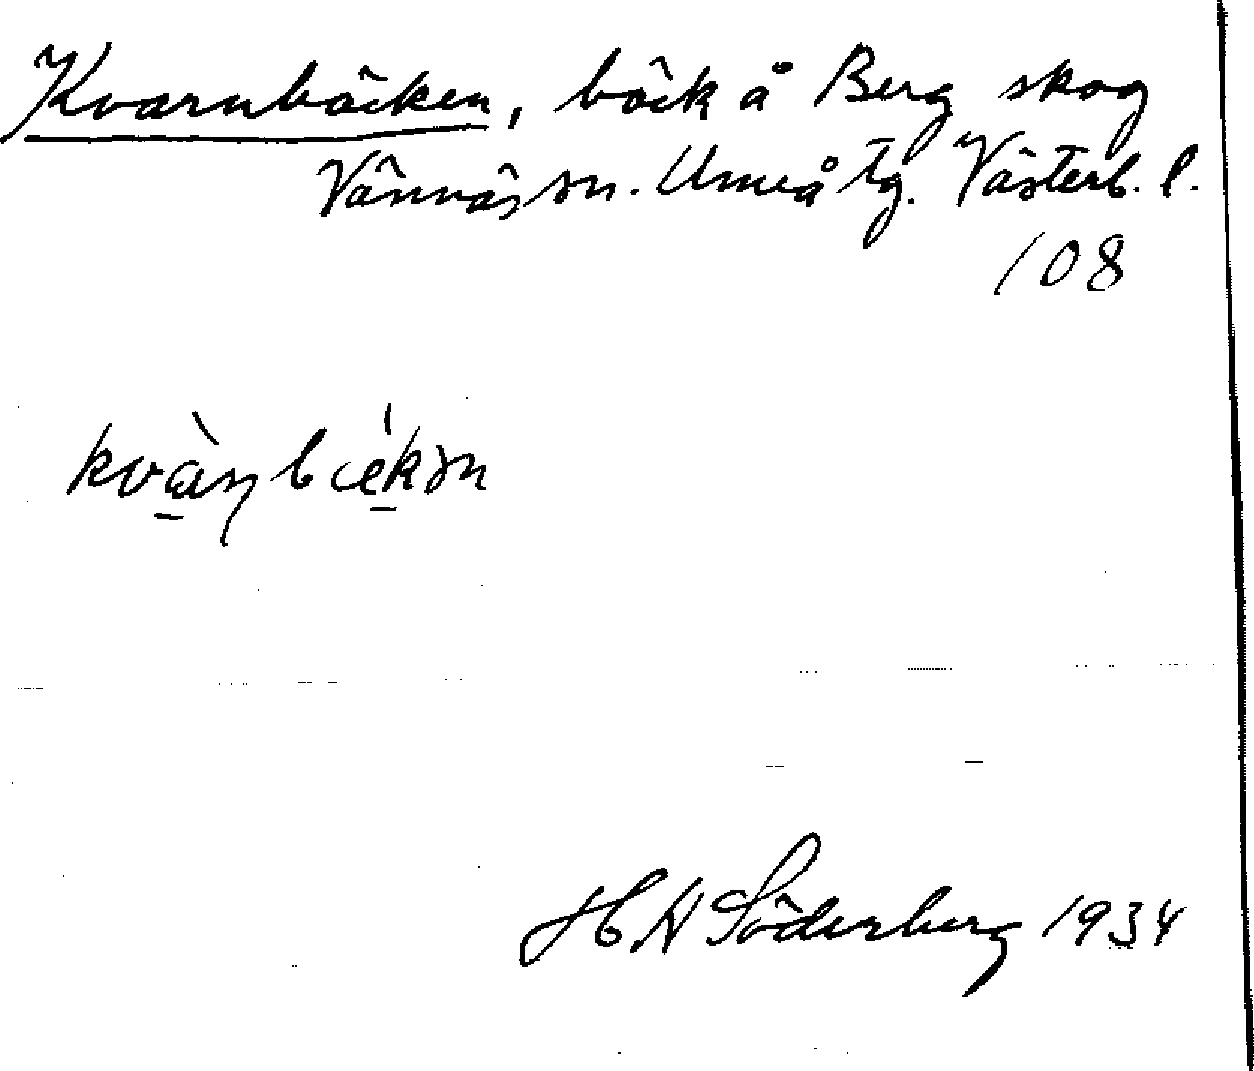 Kvarnbäcken, bäck å Berg skog
Vännäs sn. Umeå tg. Västerb. l.
108
kvàɳbækən
H. N Söderberg 1934